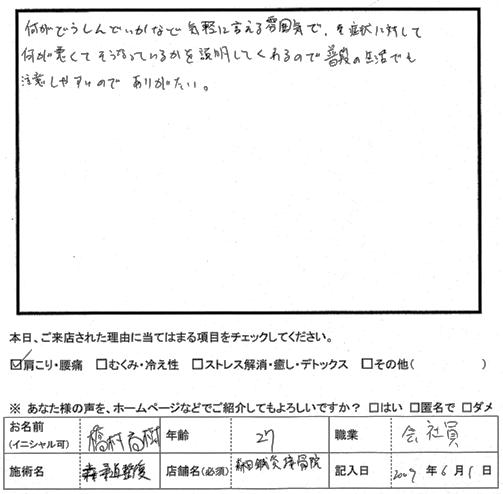 何がどうしんどいかなど気軽に言える雰囲気で、を症状に対して
何が悪くてそうなっているかを説明してくれるので普段の生活でも
注意しやすいのでありがたい。
本日、ご来店された理由に当てはまる項目をチェックしてください。
☑肩こり・腰痛 □むくみ・冷え性 □ストレス解消・癒し・デトックス □その他( )
※ あなた様の声を、ホームページなどでご紹介してもよろしいですか? □はい □匿名で □ダメ
お名前 年齢 27 職業 会社員
(イニシャル可)
施術名 店舗名(必須) 森田鍼灸接骨院 記入日 2009 年 6 月 1 日